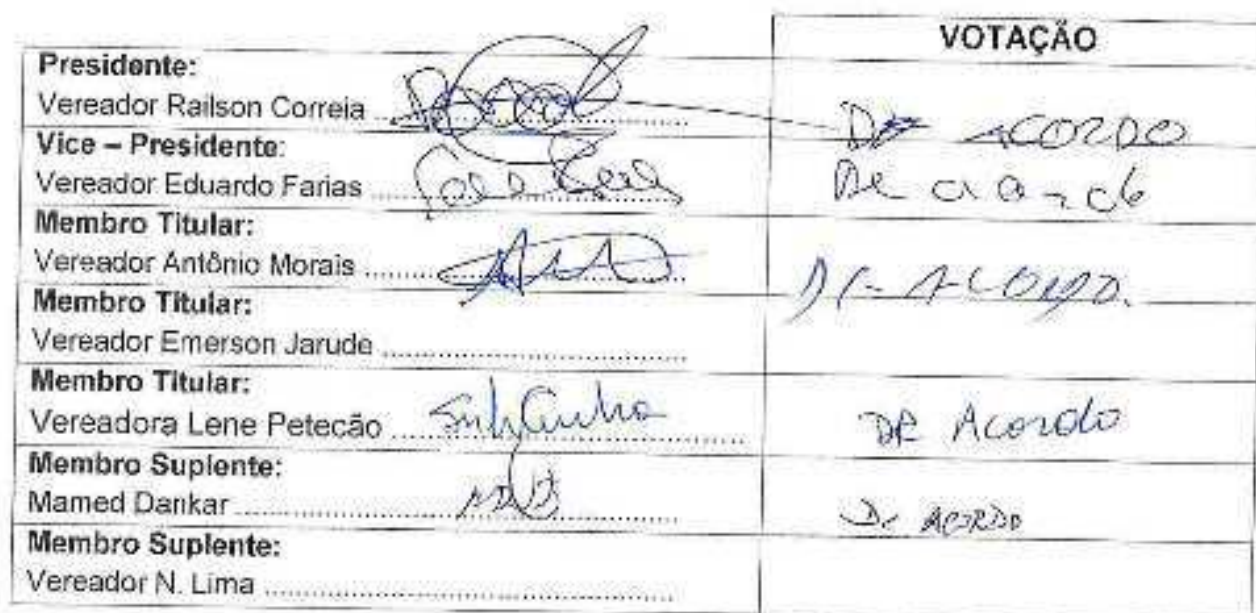 VOTAÇÃO
Presidente:
Vereador Railson Correia
DE ACORDO
Vice – Presidente:
Vereador Eduardo Farias
De acordo
Membro Titular:
Vereador Antônio Morais
DE ACORDO.
Membro Titular:
Vereador Emerson Jarude
Membro Titular:
Vereadora Lene Petecão
DE Acordo
Membro Suplente:
Mamed Dankar
De ACORDO
Membro Suplente:
Vereador N. Lima